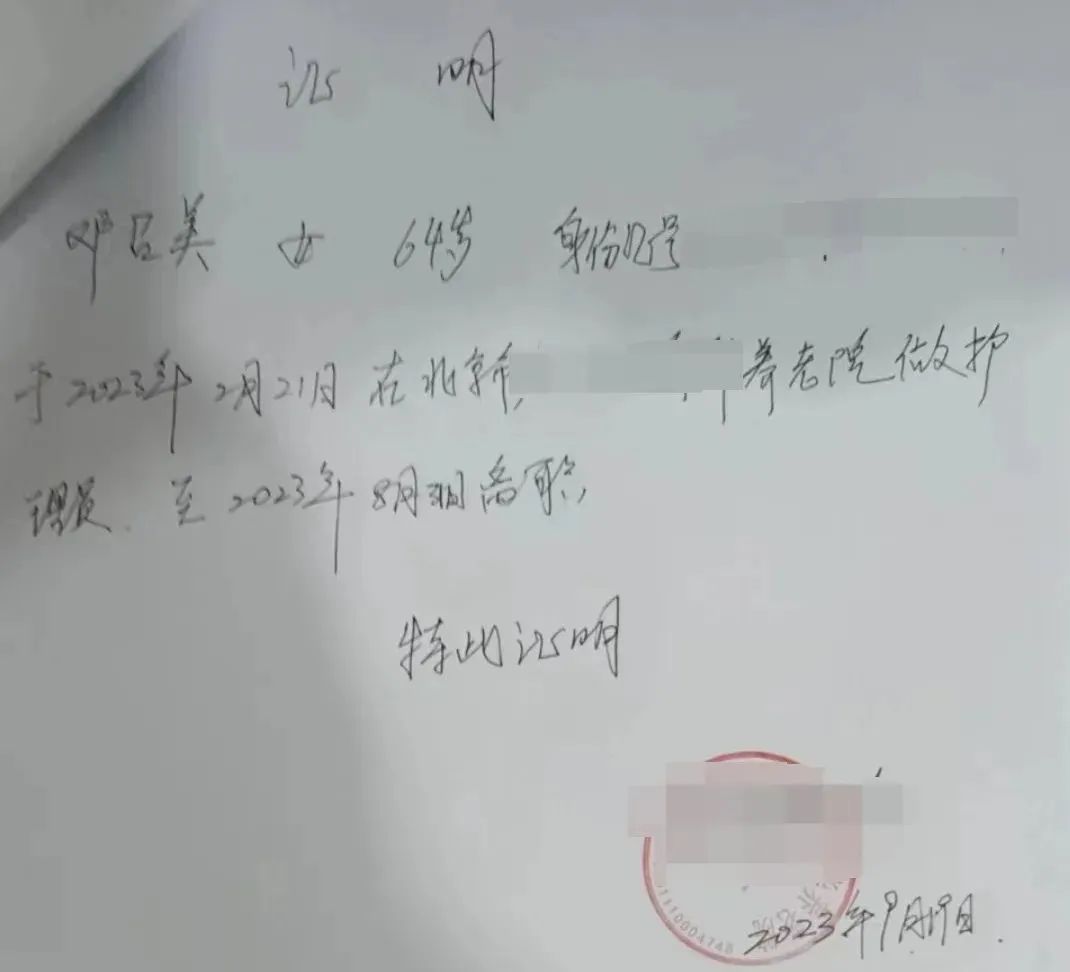 证 明
邓吕美 女 64岁 身份证号
于2023年2月21日在北京市 养老院做护
理员、至2023年8月 离职,
特此证明
1110004748
2023年9月19日.